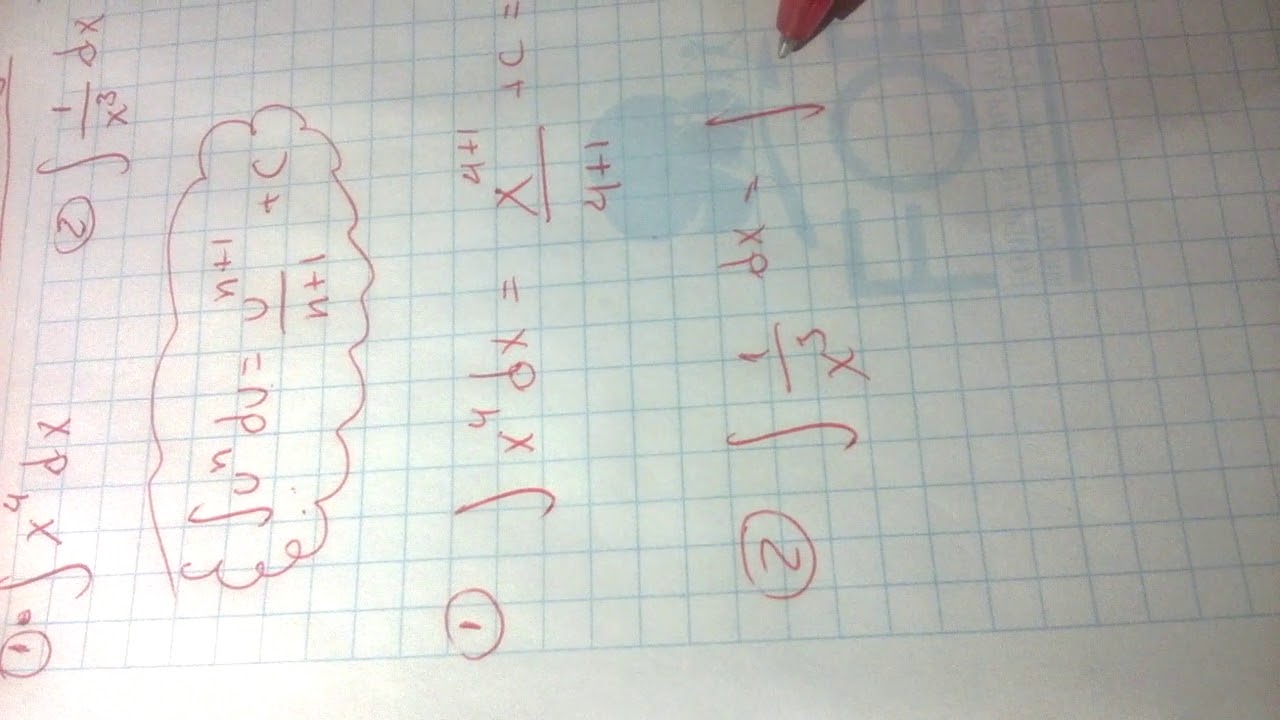 ① ∫ x⁴ dx   ② ∫ 1/x³ dx
∫ uⁿ du = uⁿ⁺¹/n+1 + C
① ∫ x⁴ dx = x⁴⁺¹/4+1 + C =
② ∫ 1/x³ dx = ∫